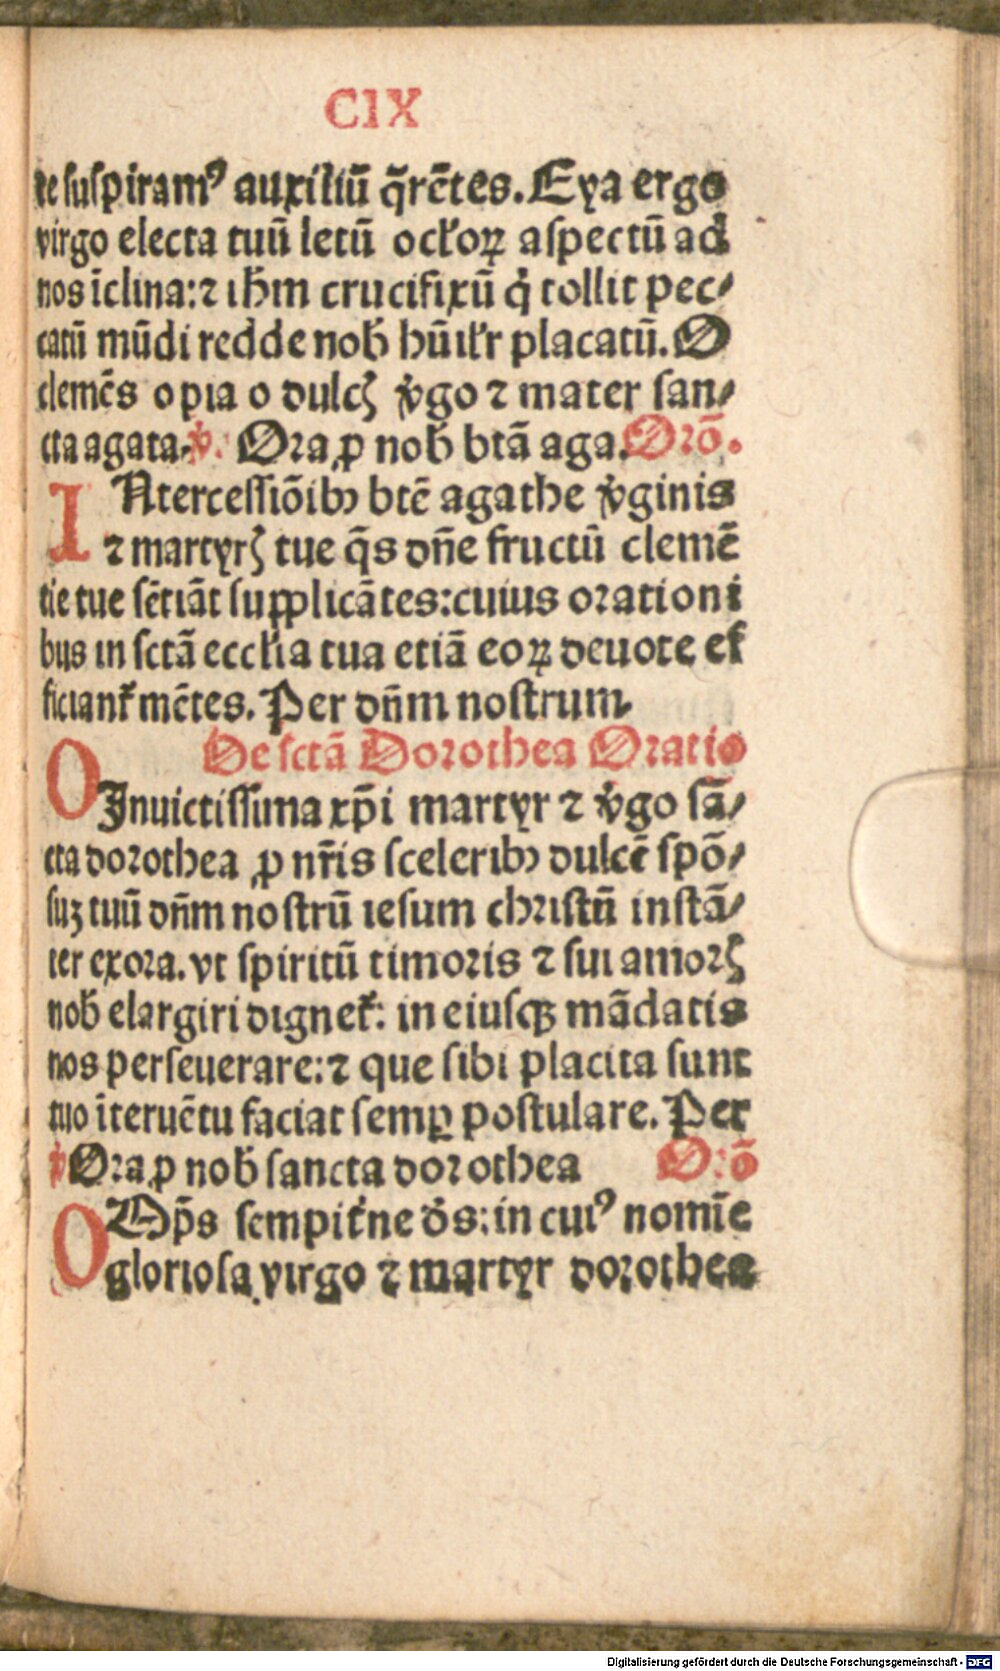 CIX
te suspiramꝰ auxiliū q̄rētes. Eya ergo
virgo electa tuū letū ocl̕oꝝ aspectū ad
nos īclina: ⁊ ihm̄ crucifixū q̇ tollit pec⸗
catū mūdi redde nob̄ hūil̕r placatū. O
clemēs o pia o dulcꝭ v̄go ⁊ mater san⸗
cta agata. v̄. Ora ꝓ nob̄ btā aga. Orō.
INtercessiōibꝰ btē agathe v̄ginis
⁊ martyrꝭ tue q̄s dn̄e fructū clemē
tie tue sētiāt supplicātes: cuius orationi
bus in sctā eccl̕ia tua etiā eoꝝ deuote ef
ficiant̕ mētes. Per dn̄m nostrum.
De sctā Dorothea Oratio
O Inuictissima xp̄i martyr ⁊ v̄go sā⸗
cta dorothea ꝓ nr̄is sceleribꝰ dulcē spō⸗
suꝫ tuū dn̄m nostrū iesum christū instā⸗
ter exora. vt spiritū timoris ⁊ sui amorꝭ
nob̄ elargiri dignet̕: in eiusqꝫ mādatis
nos perseuerare: ⁊ que sibi placita sunt
tuo īteruētu faciat semꝑ postulare. Per
v̄ Ora ꝓ nob̄ sancta dorothea Orō
OMp̄s sempit̕ne ds̄: in cuiꝰ nomīe
gloriosa virgo ⁊ martyr dorothea
Digitalisierung gefördert durch die Deutsche Forschungsgemeinschaft - DFG